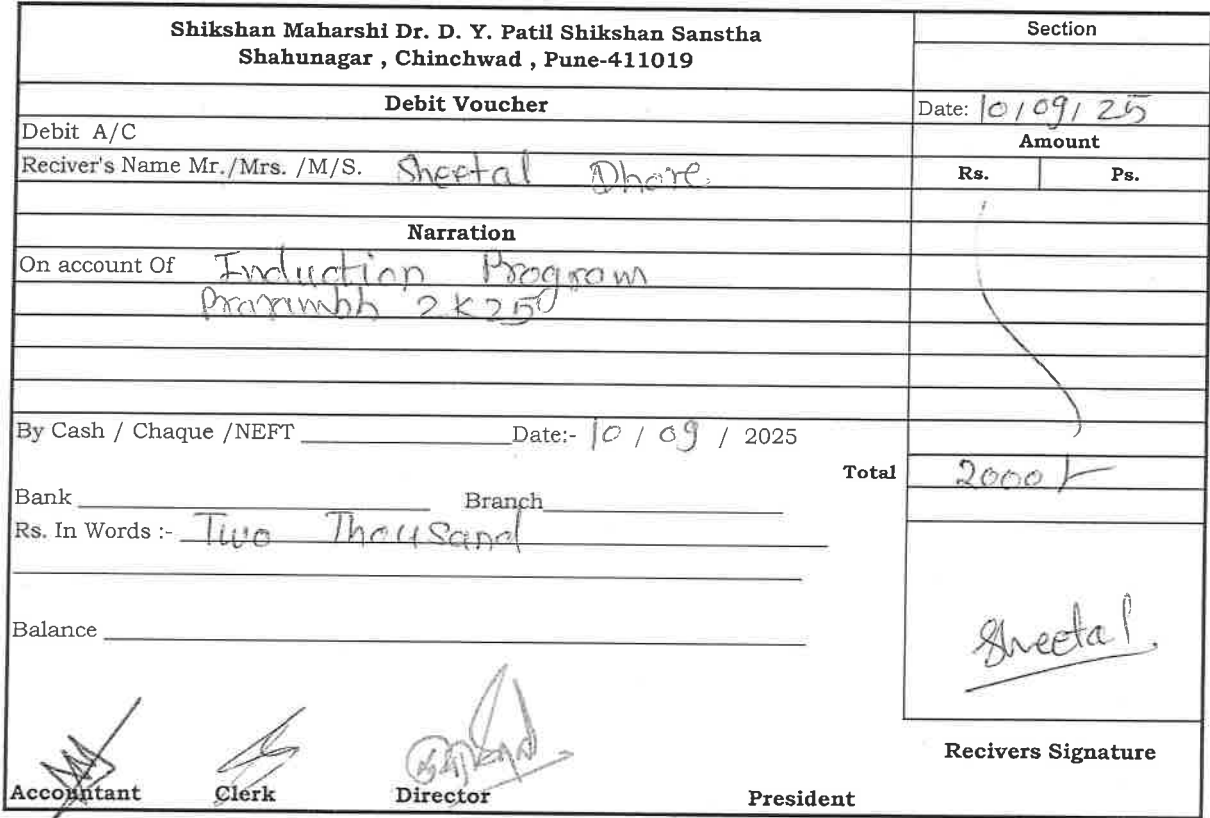 Shikshan Maharshi Dr. D. Y. Patil Shikshan Sanstha
Shahunagar , Chinchwad , Pune-411019
Section
Debit Voucher
Date: 10/09/25
Debit A/C
Amount
Reciver's Name Mr./Mrs. /M/S. Sheetal Dhore.
Rs. Ps.
Narration
On account Of Induction Program
Prarambh 2K25
By Cash / Chaque /NEFT Date:- 10 / 09 / 2025
Total 2000/-
Bank Branch
Rs. In Words :- Two Thousand
Balance
Sheetal.
Recivers Signature
Accountant Clerk Director President